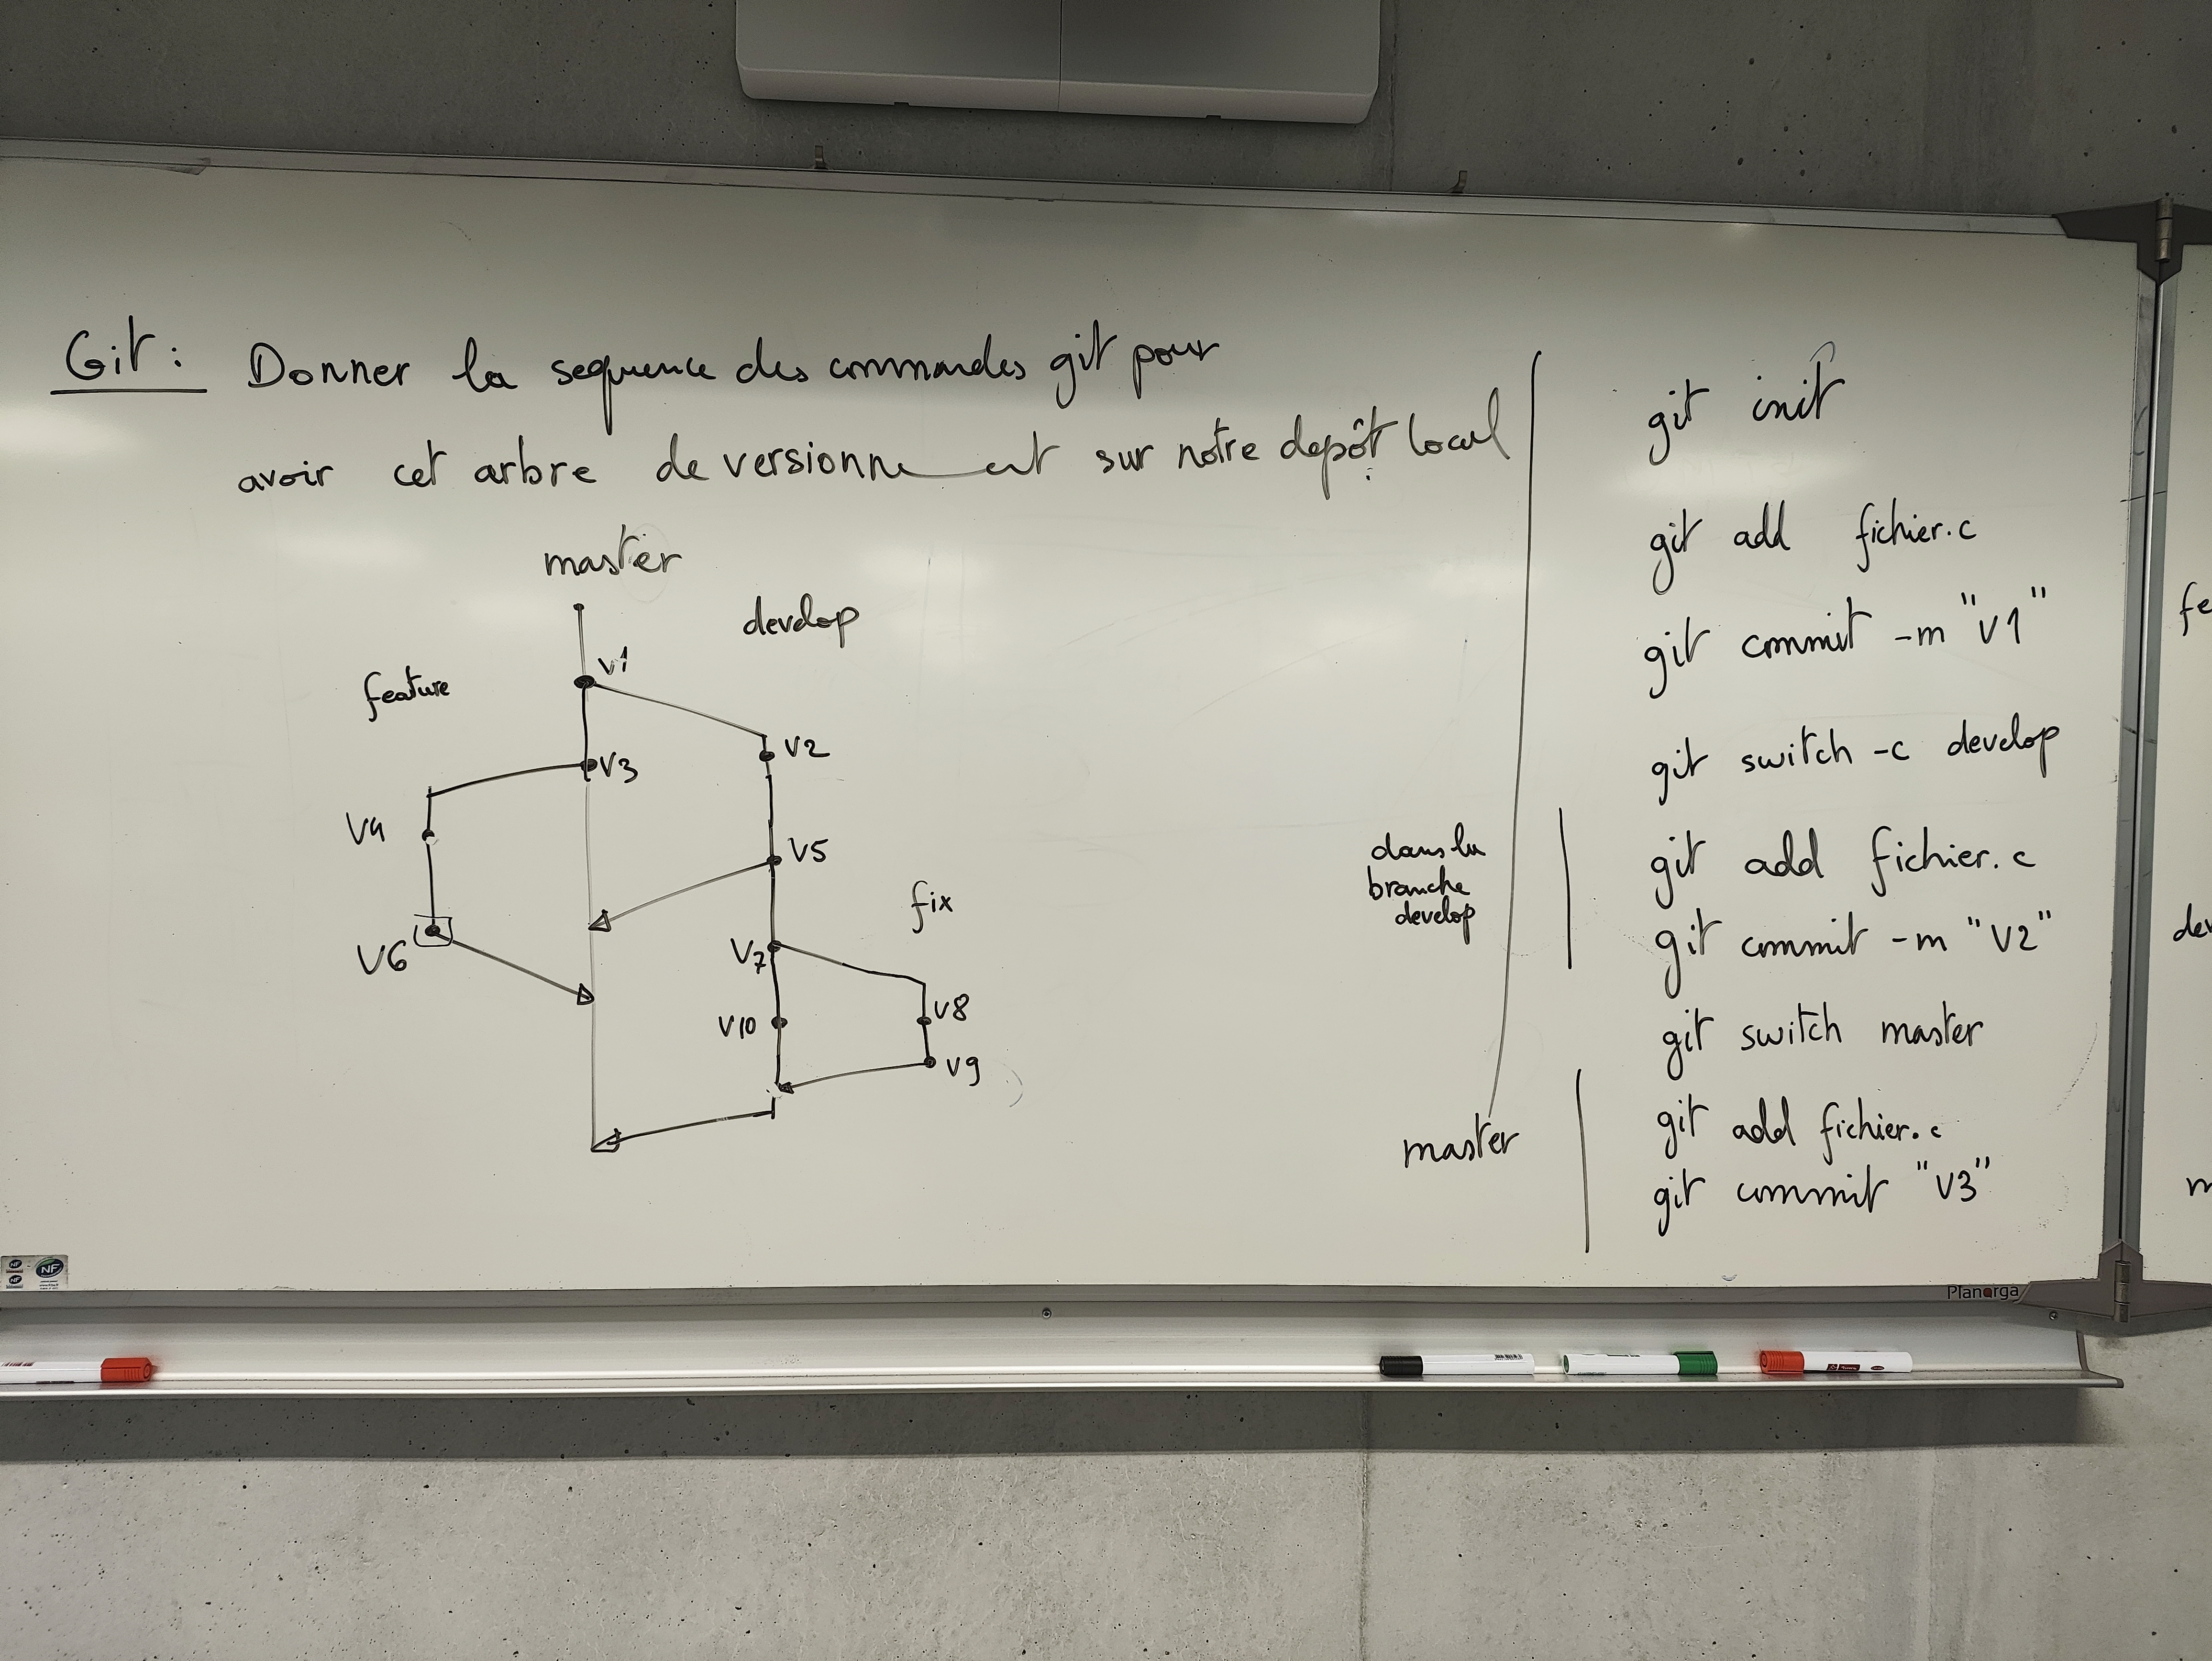 Git : Donner la sequence des commandes git pour
avoir cet arbre de versionnement sur notre depôt local :
master
develop
feature
v1
V2
V3
V4
V5
fix
V6
V7
V8
V10
V9
git init
git add fichier.c
git commit -m "V1"
git switch -c develop
dans la
branche
develop
git add fichier.c
git commit -m "V2"
git switch master
master
git add fichier.c
git commit "V3"
fe
dev
m
Planorga
NF